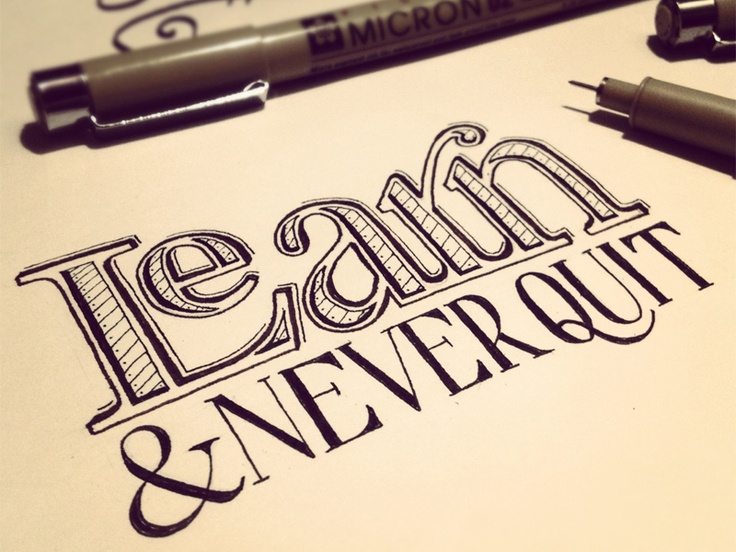 MICRON 02
Learn
& NEVER QUIT